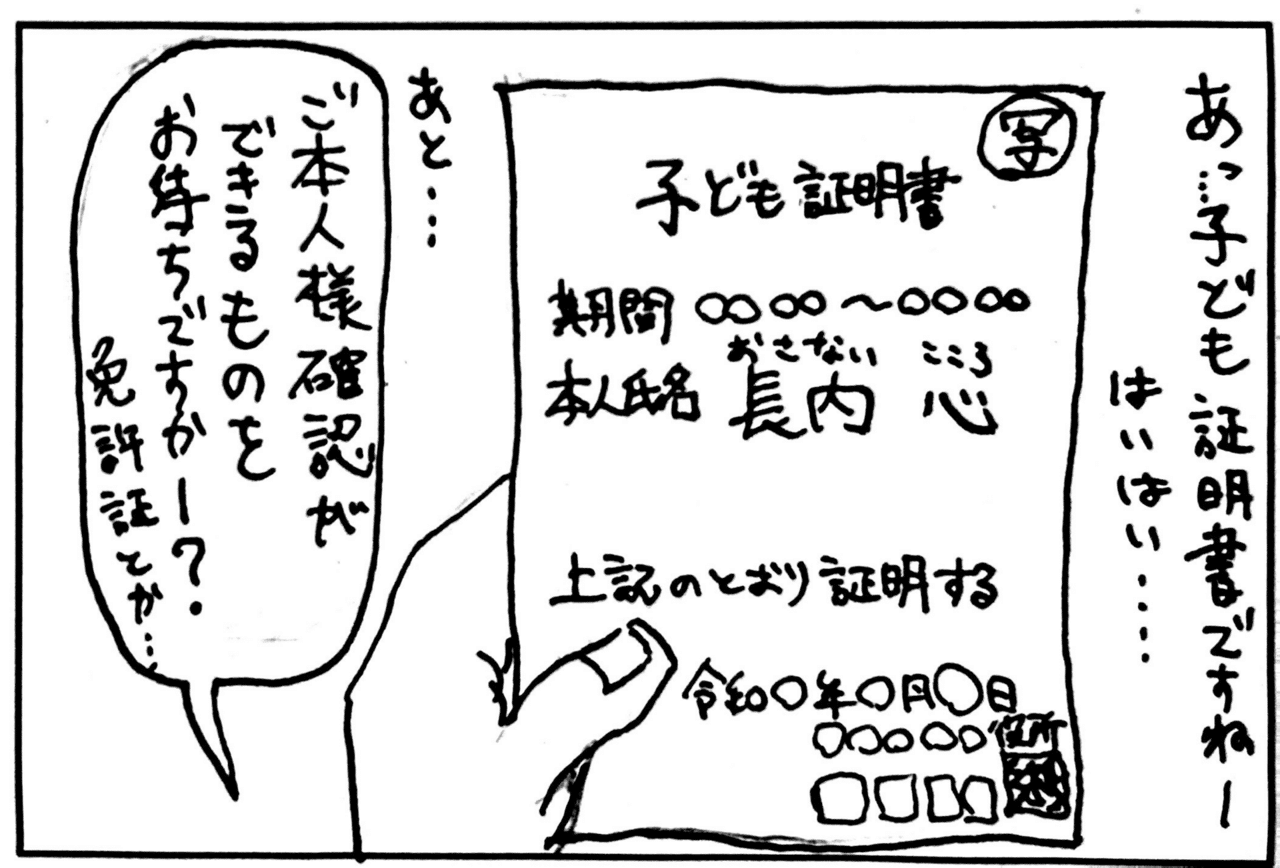 あっ…子ども証明書ですねー
はいはい……
写
子ども証明書
期間 〇〇〇〇～〇〇〇〇
おさない こころ
本人氏名 長内 心
上記のとおり証明する
令和〇年〇月〇日
〇〇〇〇〇役所
□□□□
あと…
ご本人様確認が
できるものを
お待ちですかー?
免許証とか…